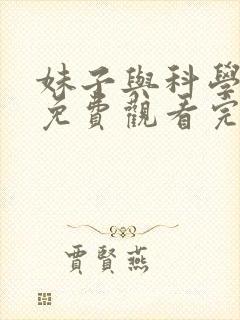 妹子與科學
免費觀看完
賈賢燕